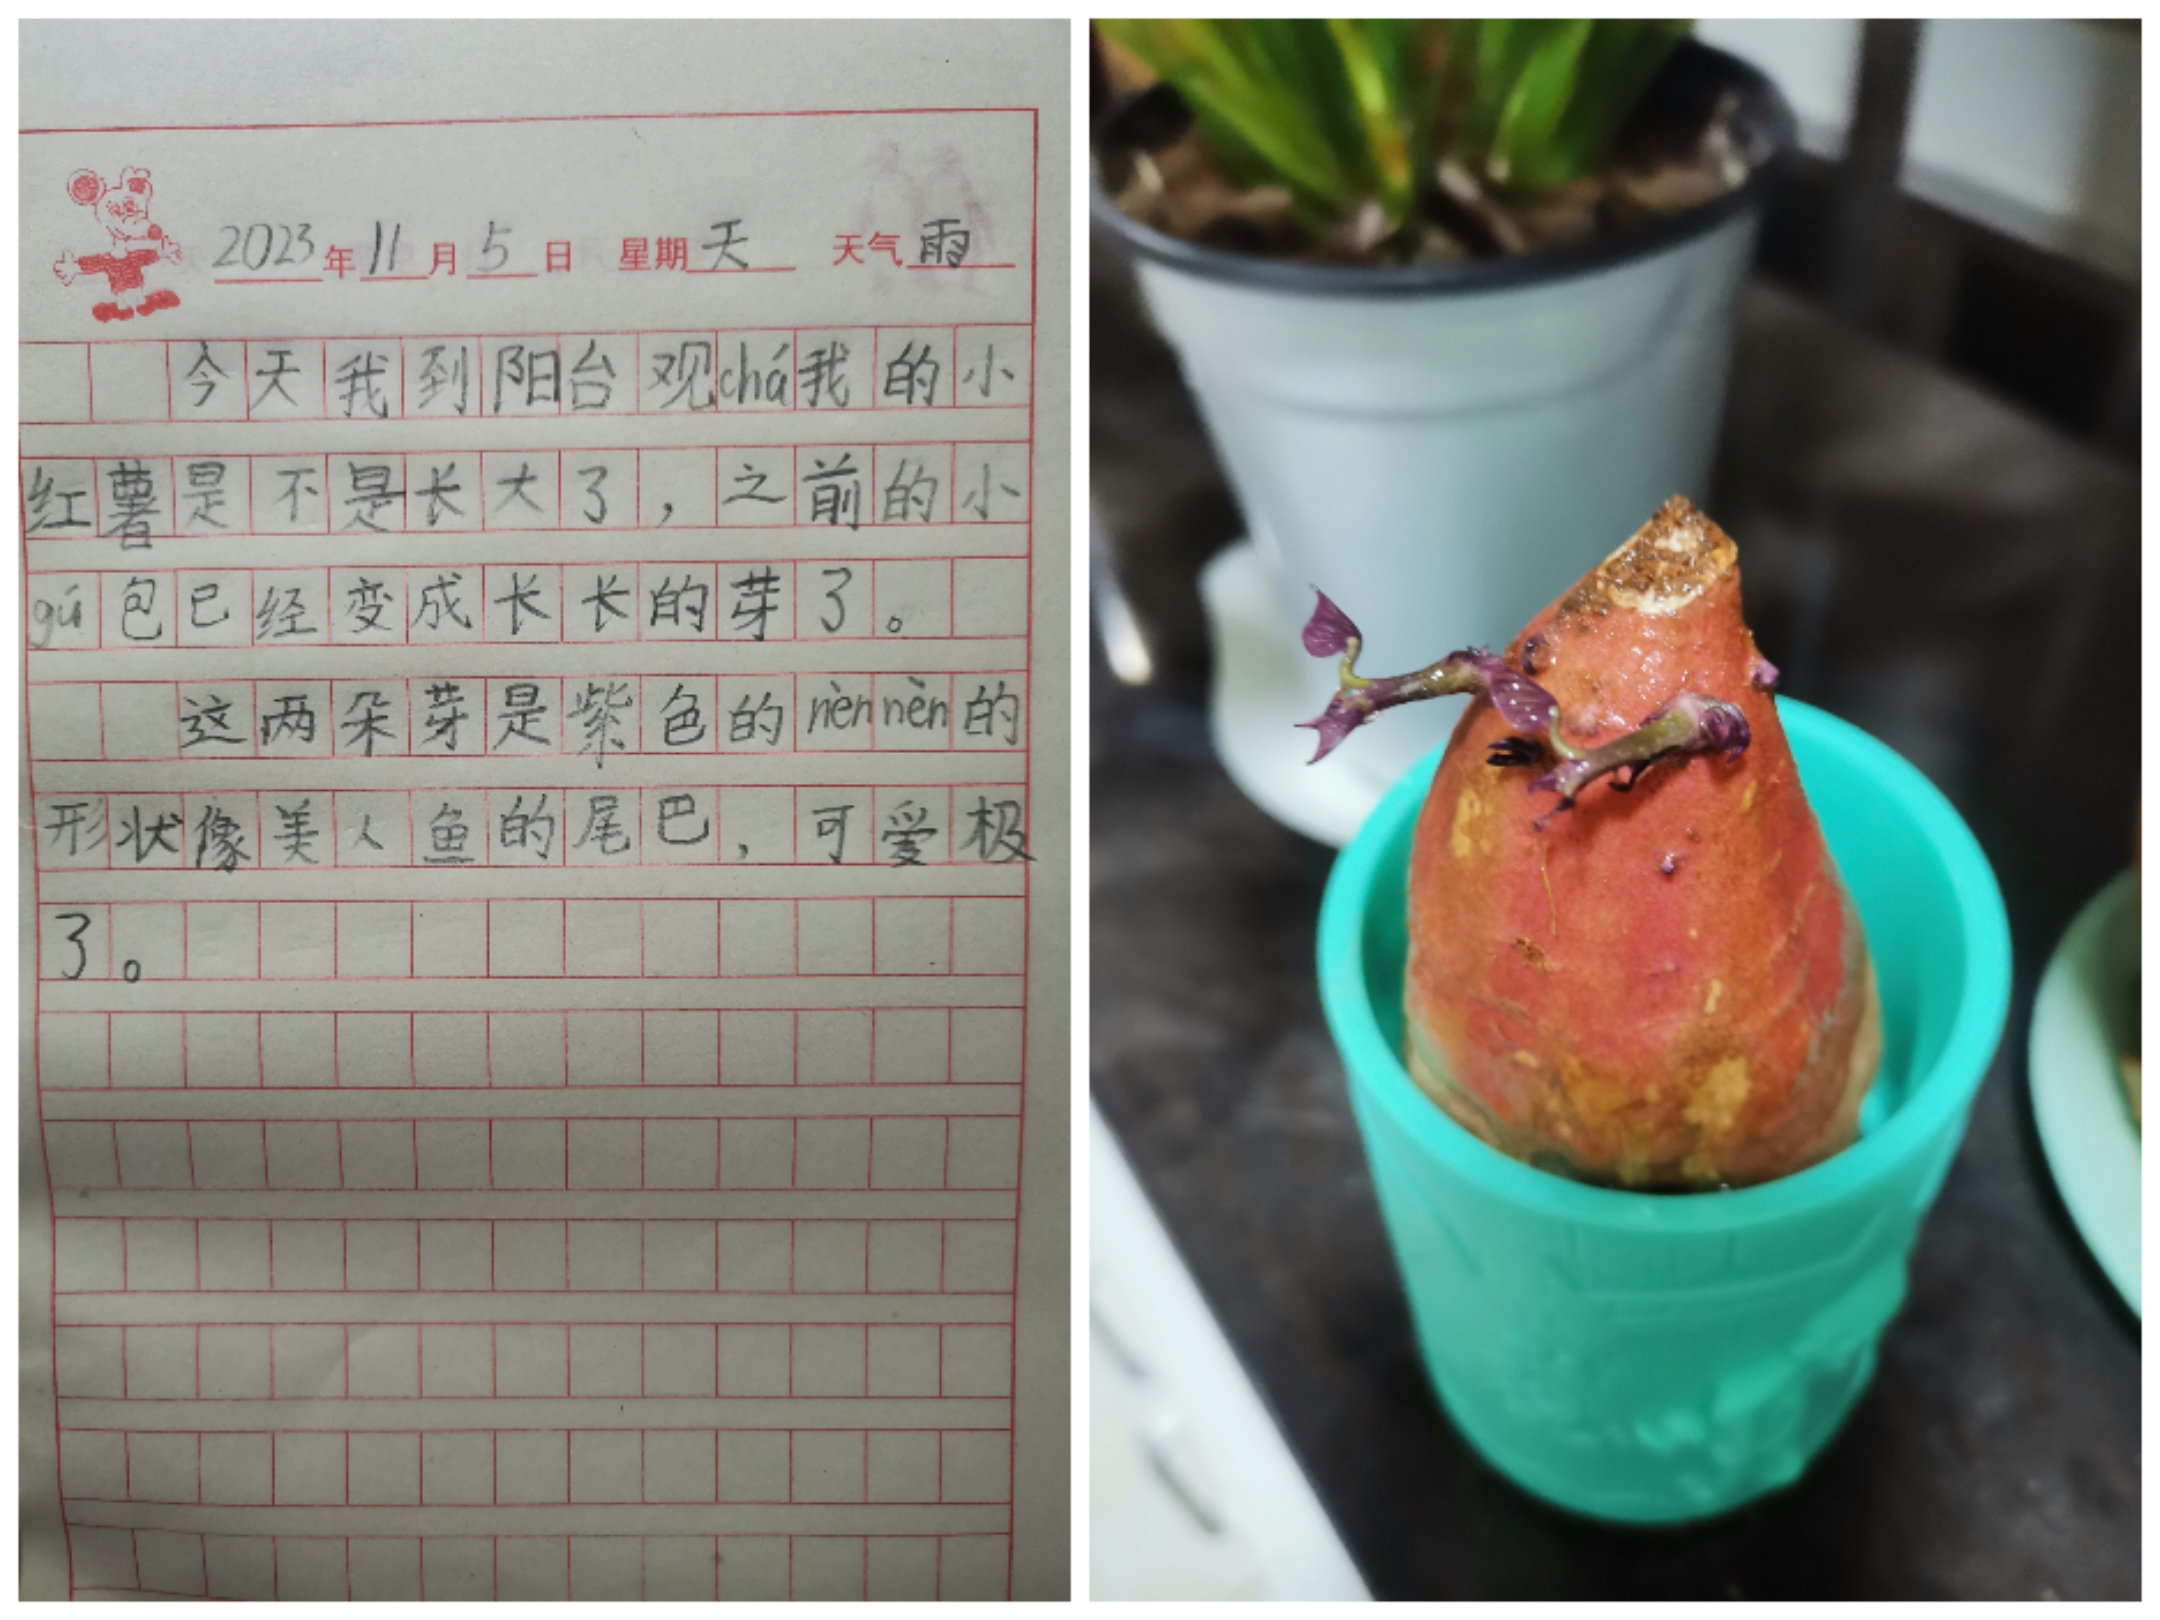 2023年11月5日 星期天 天气雨
今天我到阳台观chá我的小
红薯是不是长大了，之前的小
gú包已经变成长长的芽了。
这两朵芽是紫色的nènnèn的
形状像美人鱼的尾巴，可爱极
了。